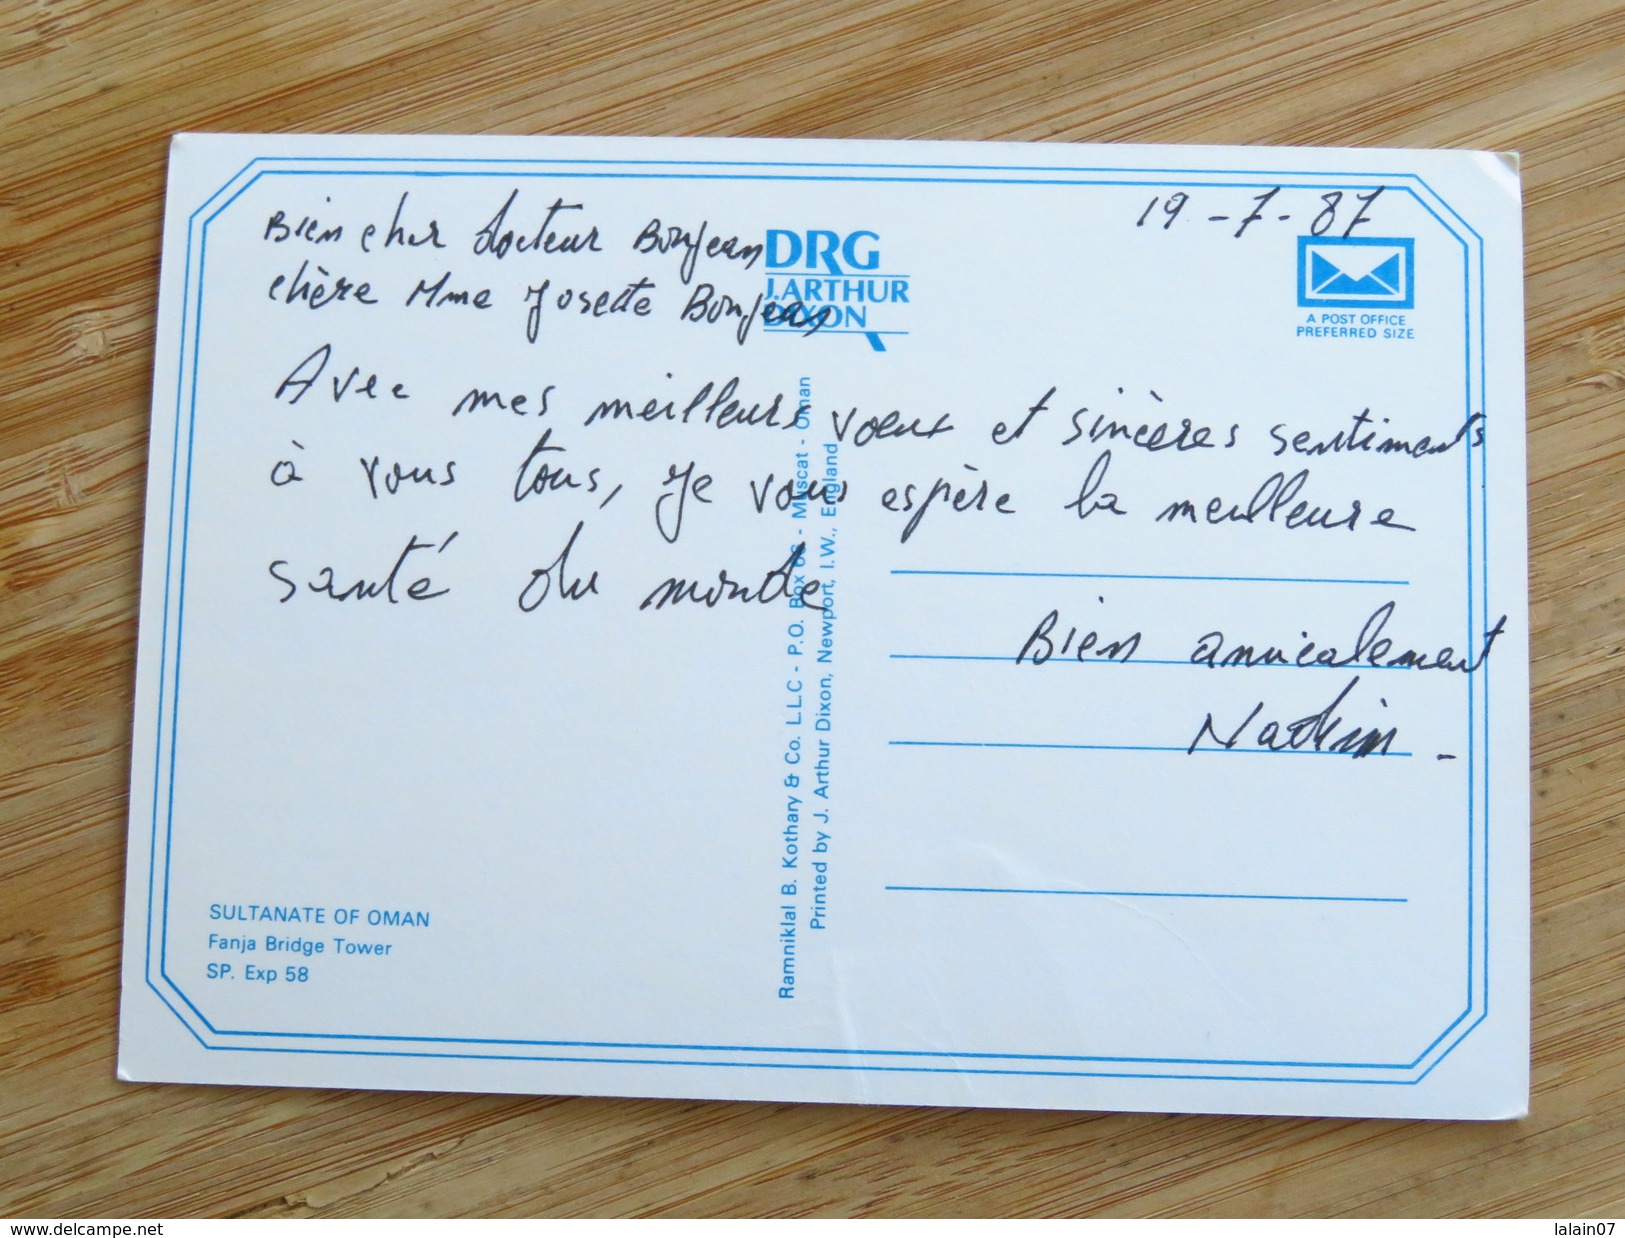 19-7-87
Bien cher docteur Bonjean
chère Mme Josette Bonjean
Avec mes meilleurs vœux et sincères sentiments
à vous tous, je vous espère la meilleure
santé du monde
Bien amicalement
DRG
J.ARTHUR
DIXON
A POST OFFICE
PREFERRED SIZE
Ramniklal B. Kothary & Co. L.L.C - P.O. Box - Muscat - Oman
Printed by J. Arthur Dixon, Newport, I.W., England
SULTANATE OF OMAN
Fanja Bridge Tower
SP. Exp 58
www.delcampe.net
lalain07